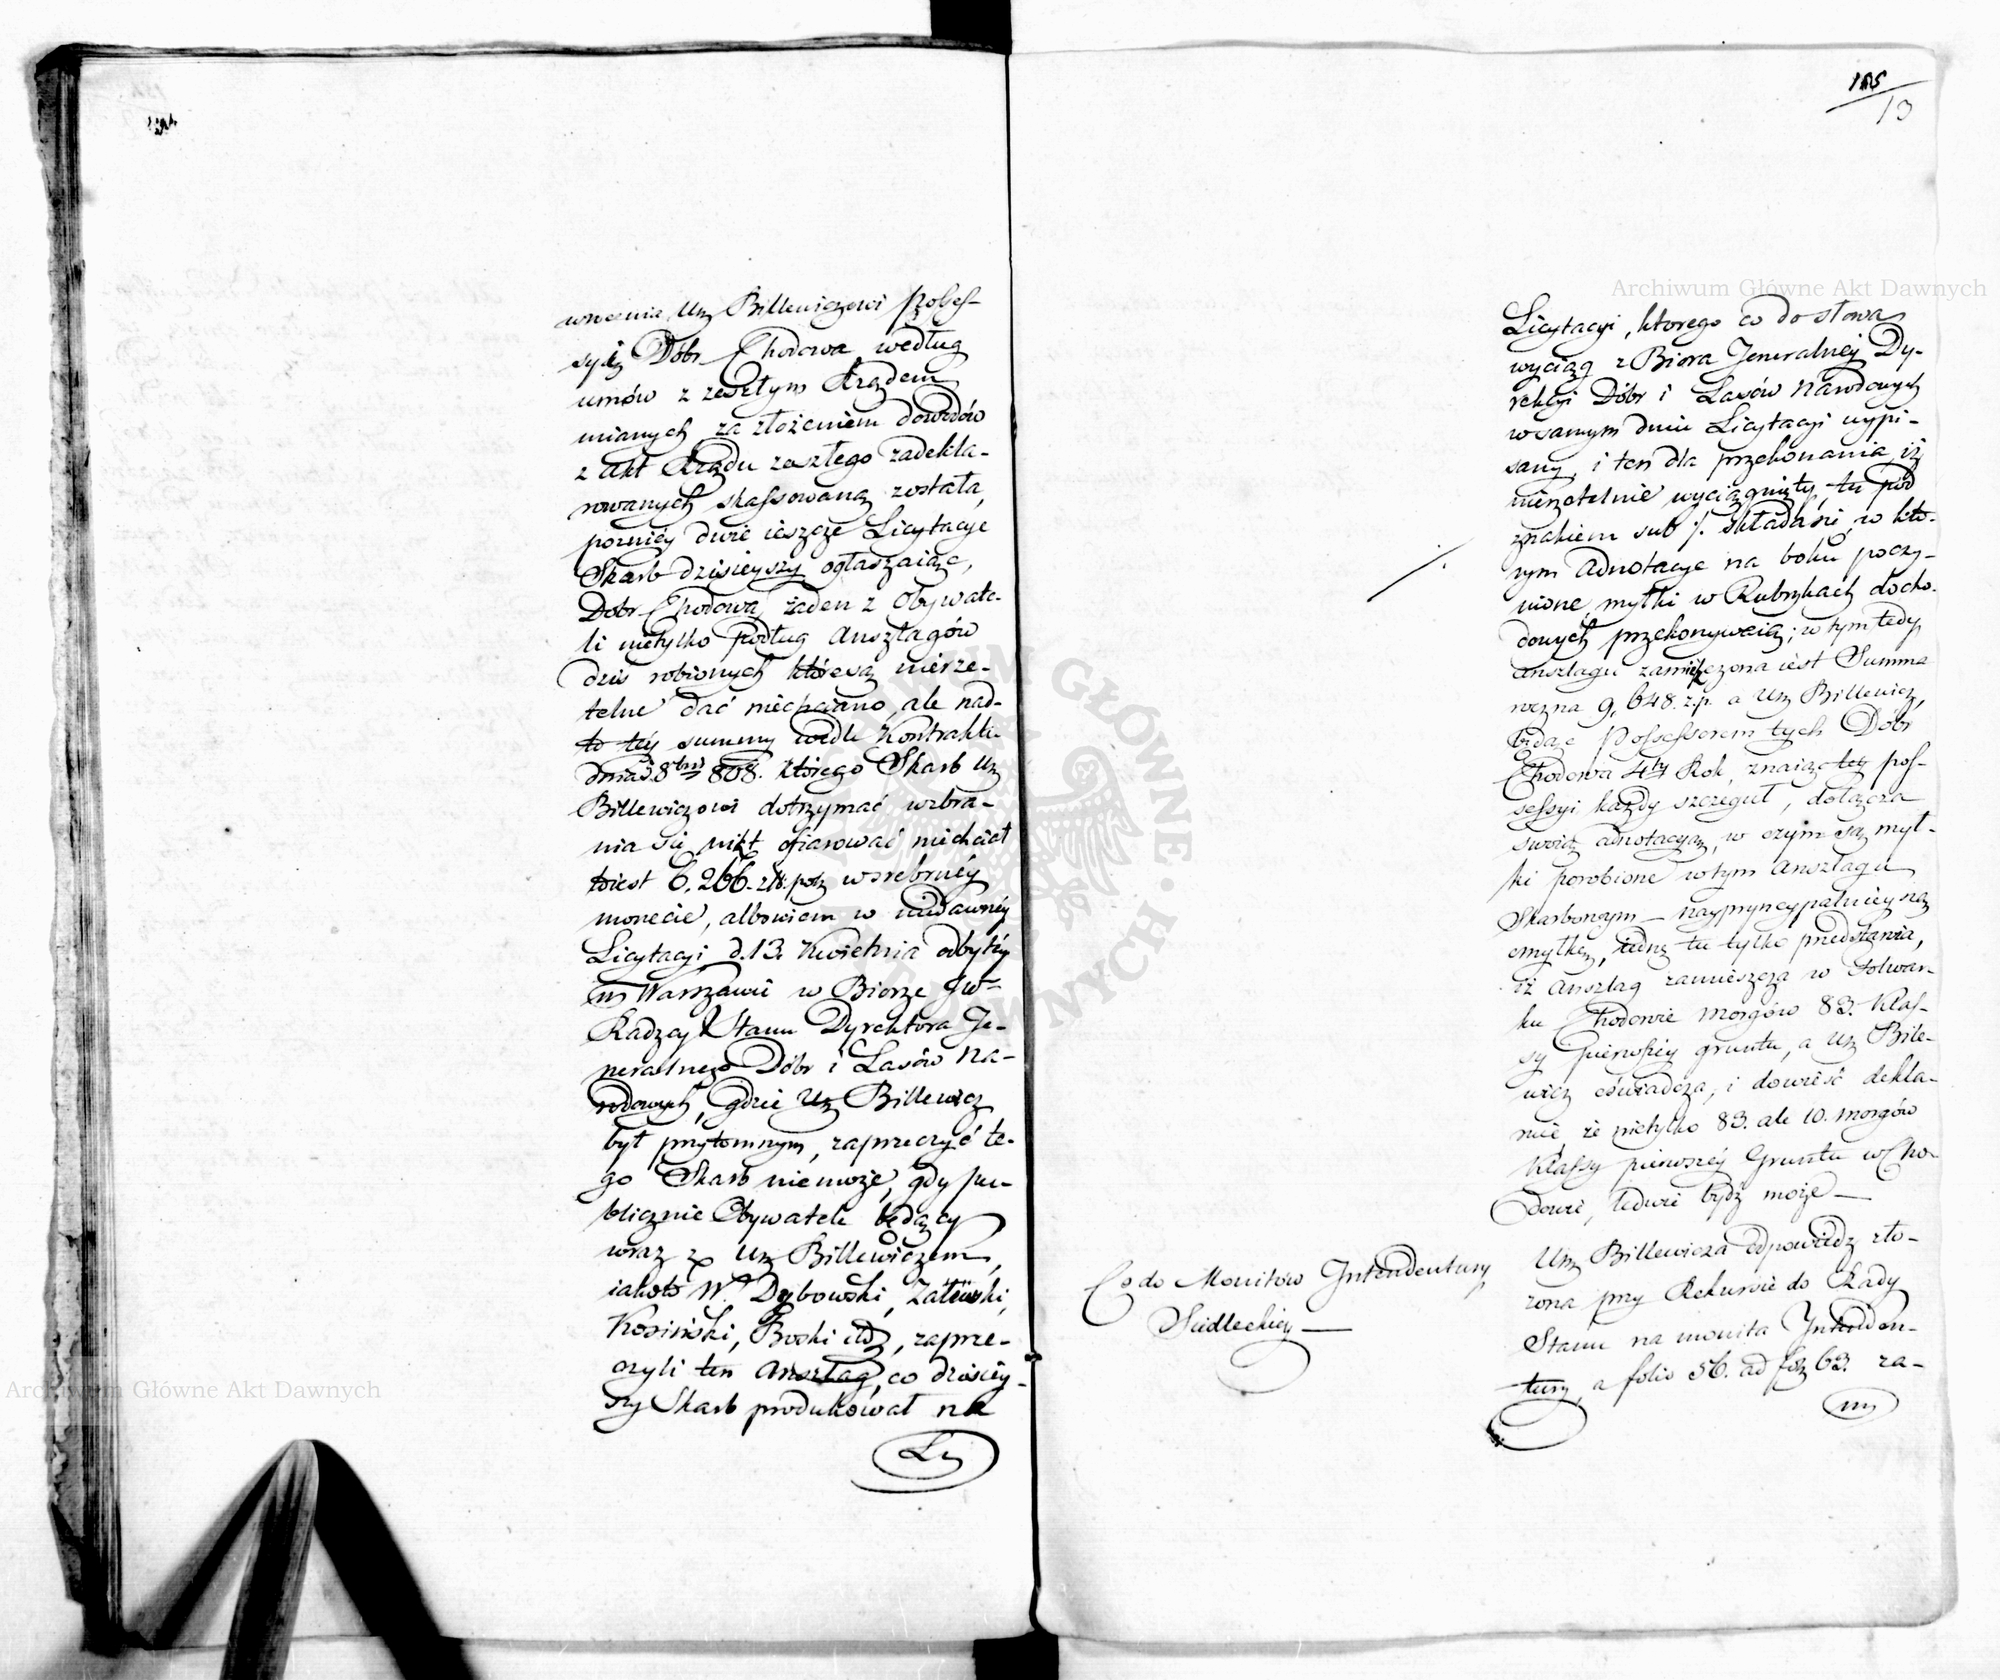 125
13
wrócenia Ur. Billewiczowi posses-
syią Dóbr Chodowa według
umów z zeszłym Rządem
mianych za złożeniem dowodów
z Akt Rządu zeszłego zadekla-
rowanych skassowaną została,
pozniéy dwie ieszcze Licytacye
Skarb dzisieyszy ogłaszaiąc,
Dobr Chodowa żaden z Obywate-
li nietylko podług Anszlagów
dziś robionych które są nierze-
telne dać niechciano, ale nad-
to téy summy wedle Kontraktu
dnia 8bris 808. którego Skarb Ur
Billewiczowi dotrzymać wzbra-
nia się nikt ofiarować niechciał
to iest 6,266. złt. pols w srebrnéy
monecie, albowiem w niedawnéy
Licytacyi d. 13. Kwietnia odbytéy
w Warszawie w Biorze JW
Radzcy Stanu Dyrektora Je-
neralnego Dóbr i Lasów Na-
rodowych, gdzie Ur Billewicz
był przytomnym, zaprzeczyć te-
go Skarb niemoże, gdy pu-
blicznie Obywatele będący
wraz z Ur Billewiczem,
iakoto W. Dybowski, Zalewski,
Kosiński, Boski itd, zaprze-
czyli ten Anszlag, co dzisiey-
szy Skarb produkował na
Li
Licytacyi, ktorego co do słowa
wyciąg z Biora Jeneralnéy Dy-
rekcyi Dóbr i Lasów Narodowych
w samym dniu Licytacyi wypi-
sany, i ten dla przekonania iż
nierzetelnie wyciągnięty, tu pod
znakiem sub ./. składa się, w któ-
rym Adnotacye na boku poczy-
nione, myłki w Rubrykach docho-
dowych przekonywaią; w tym tedy
Anszlagu zamieszczona iest Summa
roczna 9,648. z.p. a Ur Billewicz,
będąc Possessorem tych Dóbr
Chodowa 4ty Rok, znaiąc tey pos-
sessyi każdy szczeguł, dołącza
swoią adnotacyą, w czym są mył-
ki porobione w tym Anszlagu
Skarbowym — naypryncypalnieyszą
omyłkę, iedną tu tylko przedstawia,
iż Anszlag zamieszcza w Folwar-
ku Chodowie morgów 83. Klas-
sy pierwszéy gruntu, a Ur Bile-
wicz oświadcza, i dowieść dekla-
ruie, że nietylko 83. ale 10. morgów
Klassy pierwszéy Gruntu w Cho-
dowie, ledwie bydź może —
Co do Monitów Intendentury
Siedleckiey —
Ur Billewicza odpowiedz zło-
żona przy Rekursie do Rady
Stanu na monita Intenden-
tury, a folio 56. ad fol 63. za-